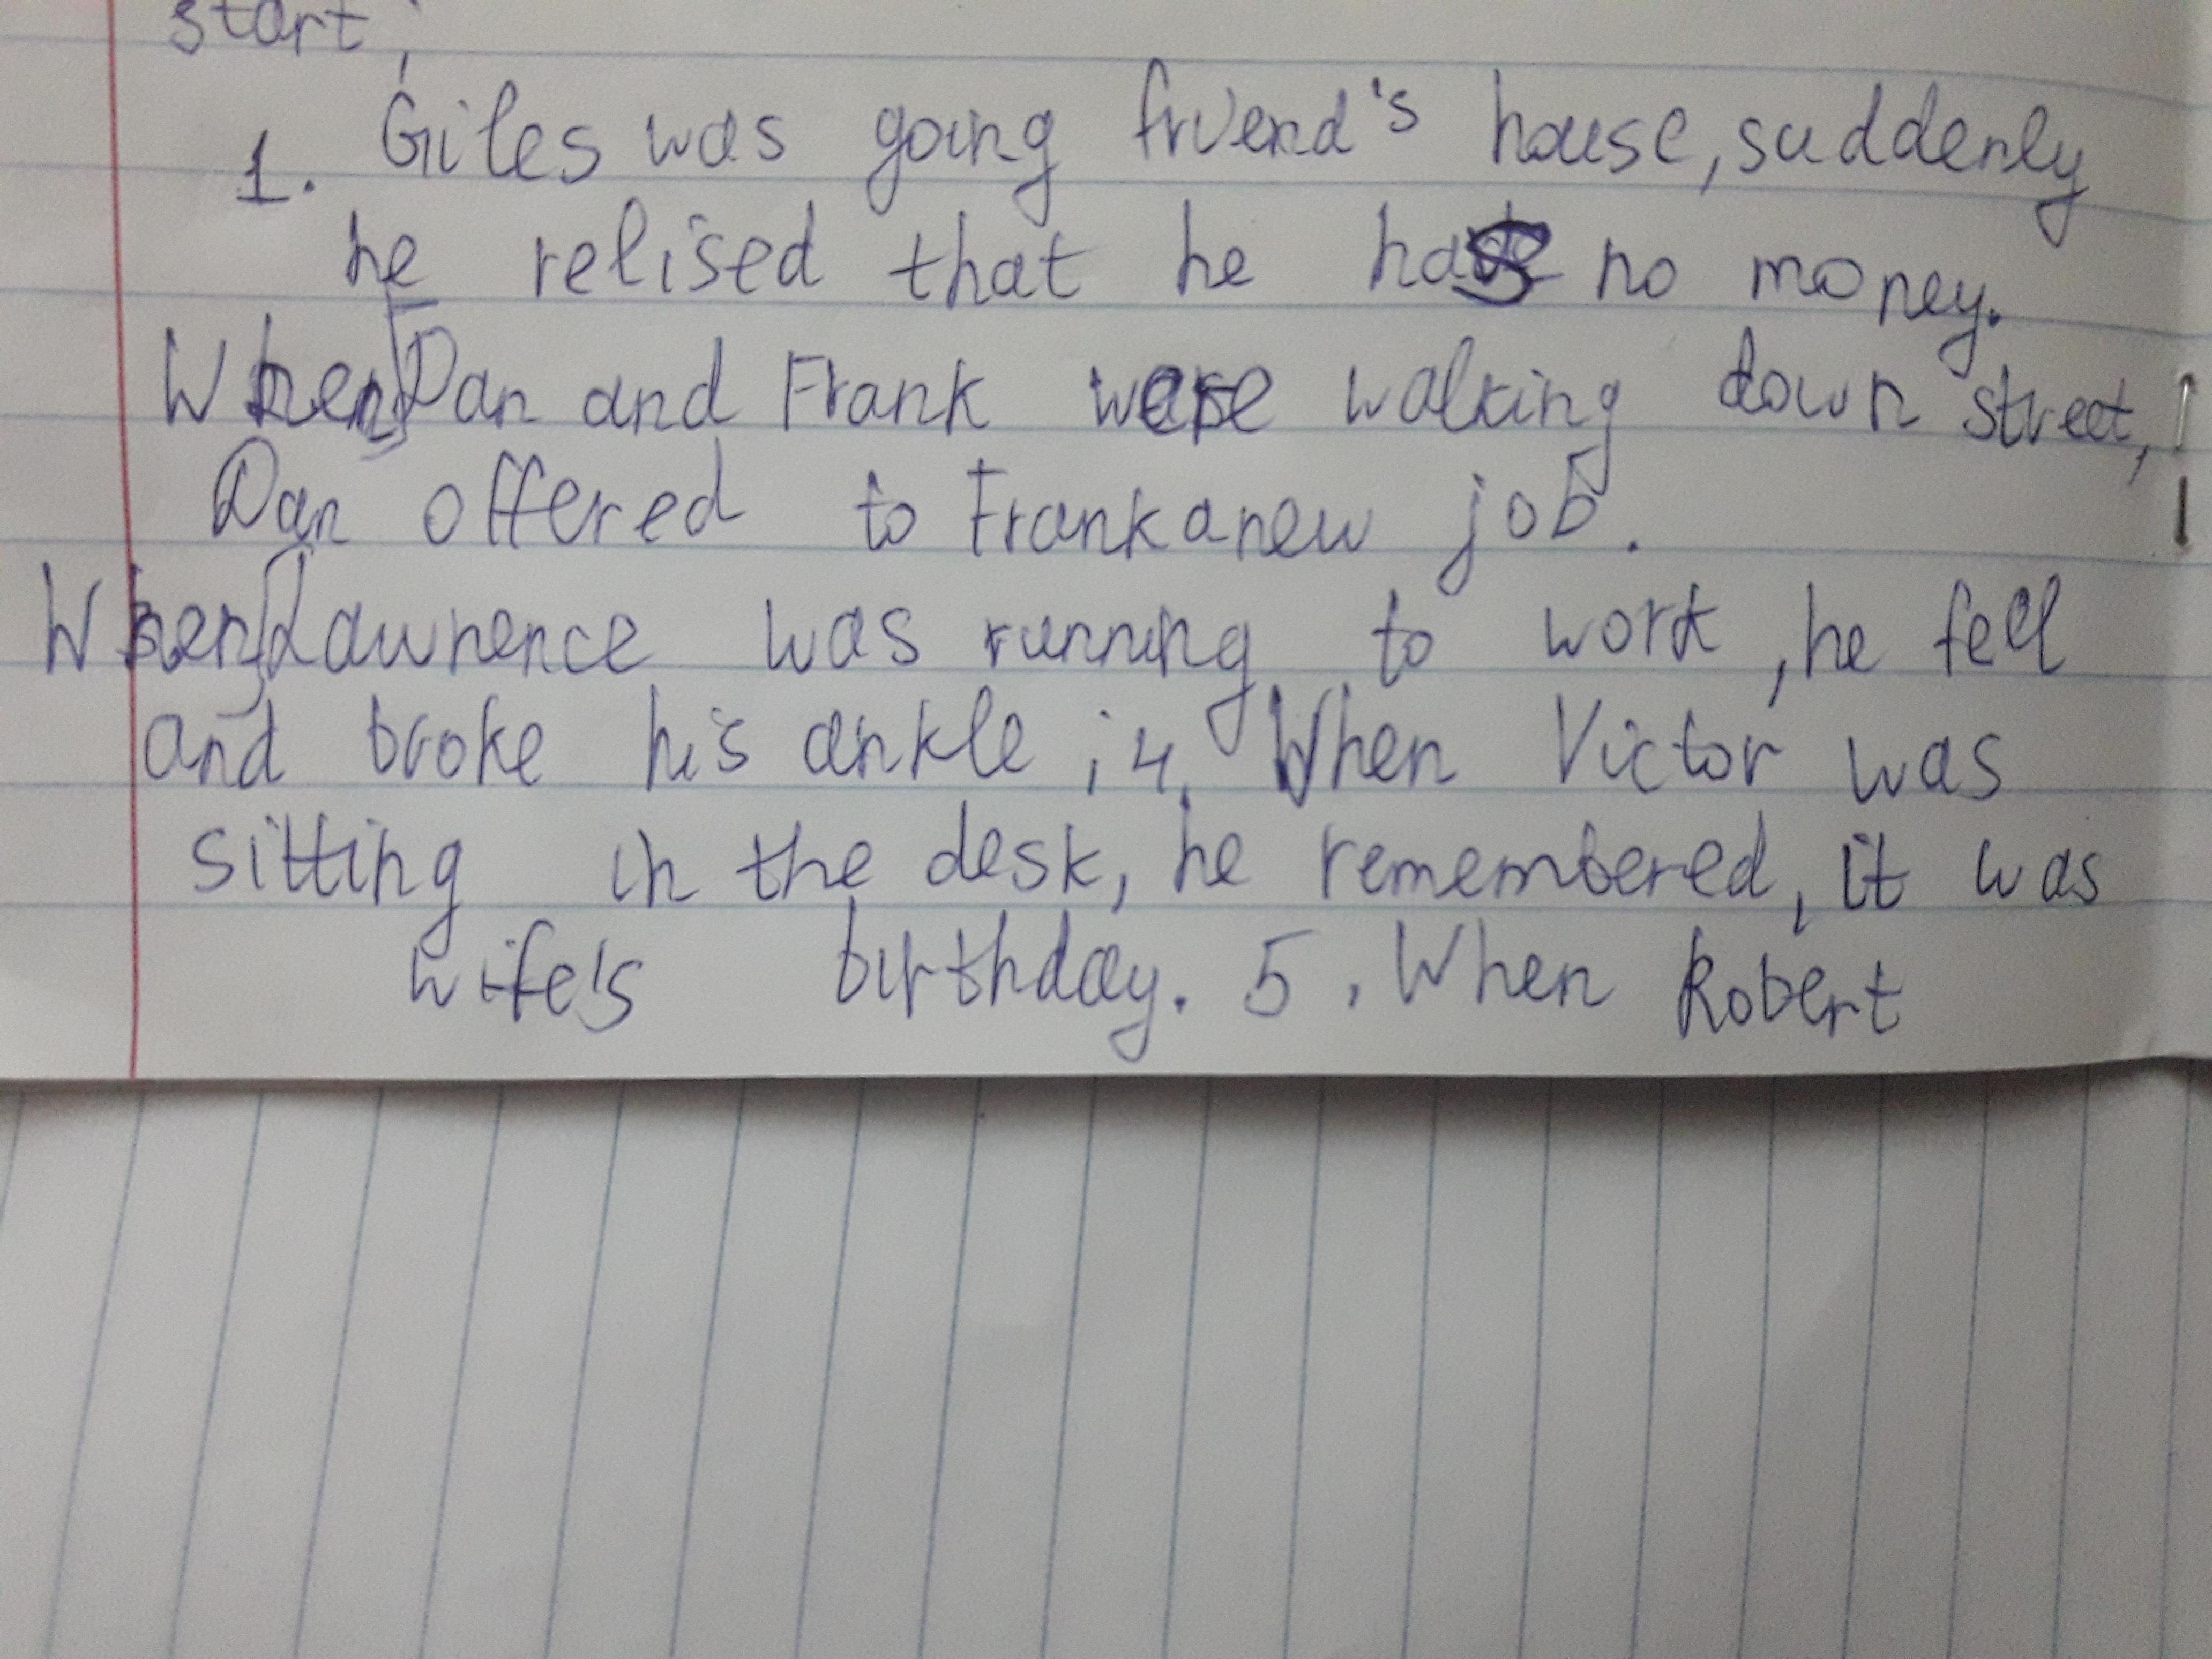 start;
1. Giles was going friend's house, suddenly
he relised that he has no money.
When Dan and Frank were walking down street,
Dan offered to Frank a new job.
When Lawrence was running to work, he fell
and broke his ankle; 4. When Victor was
sitting in the desk, he remembered, it was
wife's birthday. 5. When Robert